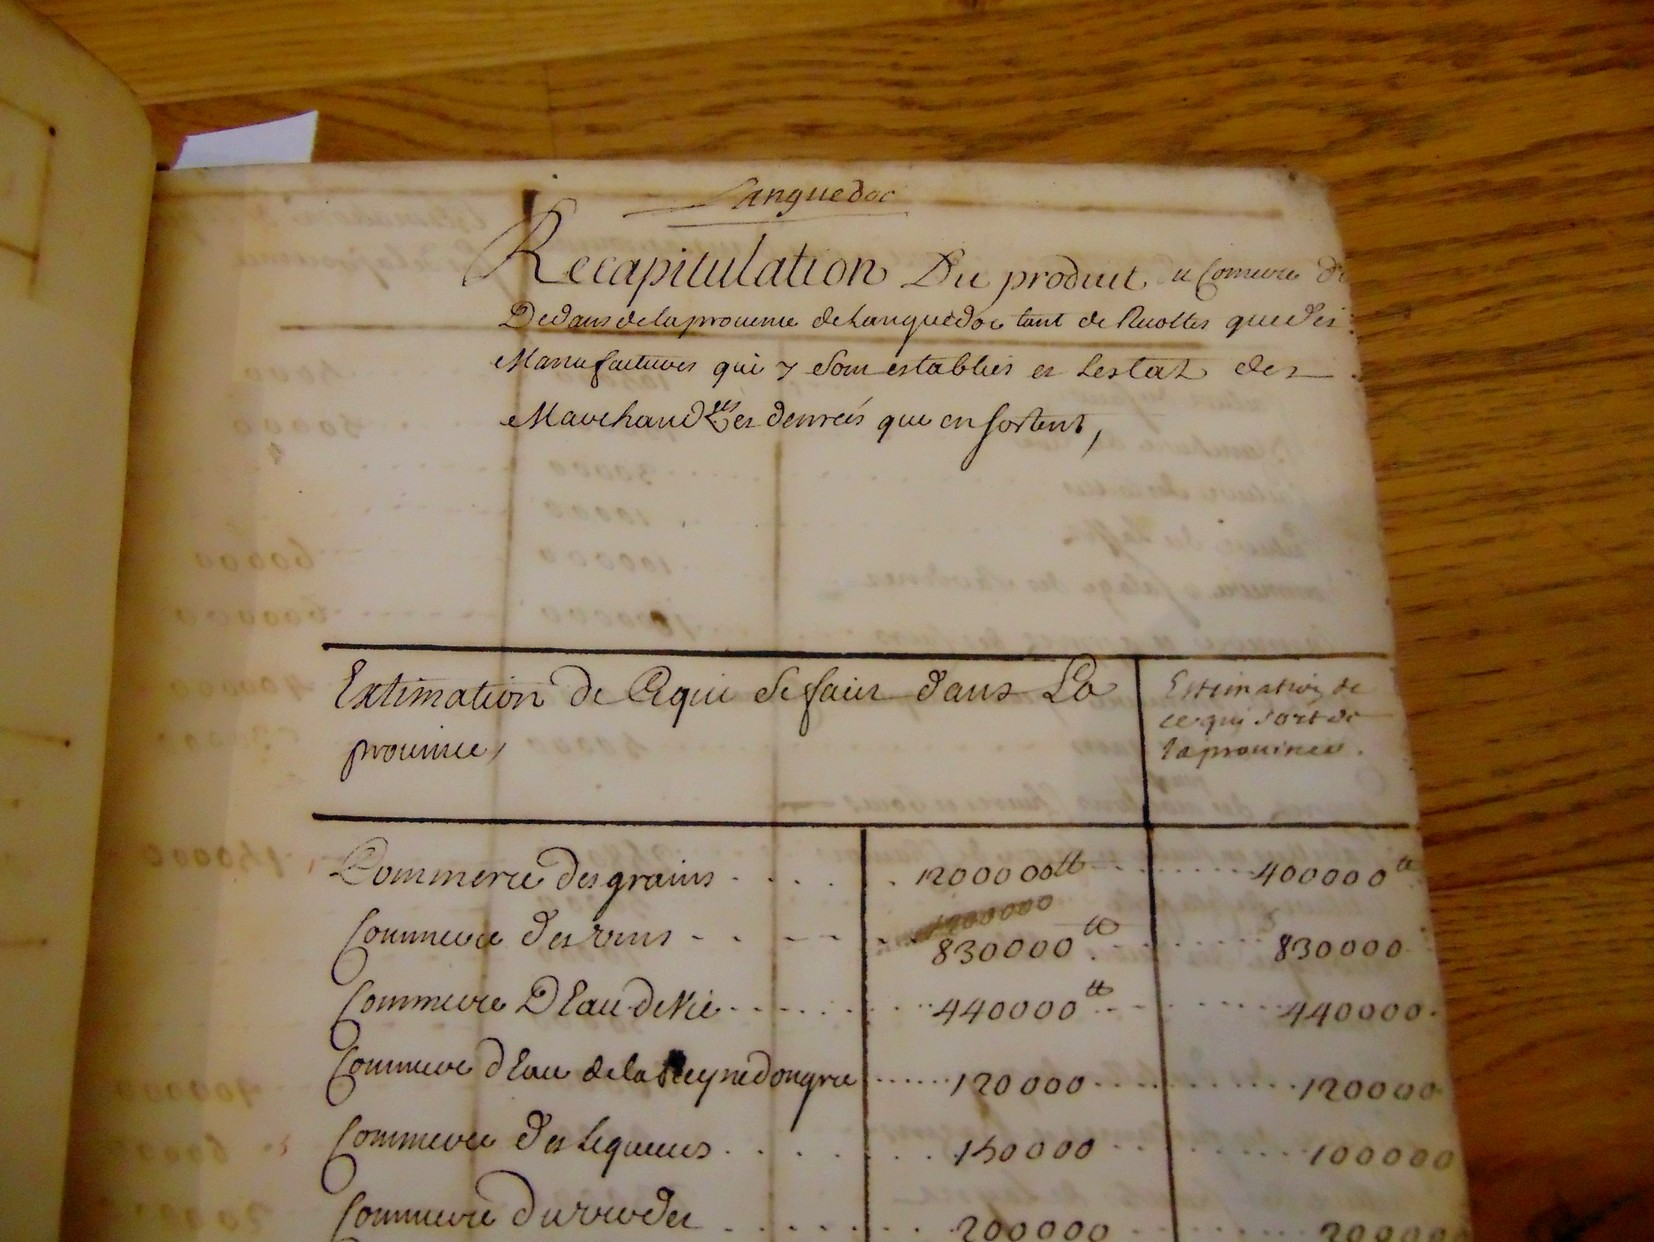 Languedoc
Recapitulation Du produit et Comerce du
Dedans de la prouince de Languedoc tant de Recoltes que des
Manufactures qui y sont establies et Lestat des
Marchand.ses et denrées qui en sortent,
Extimation de Ce qui se fait dans La
prouince,
Estimation de
ce qui sort de
la prouince.
Commerce des grains . . . . 1200000tt . . . . 400000tt
1200000
Commerce des vins - . . - - . . 830000tt . . . . 830000
Commerce D'Eau de Vie . . . . . . 440000tt . . - . . . . 440000.
Commerce d'Eau de la Reyne dongrie . . . . . 120000 . . . . . . . 120000
Commerce des Liqueurs . . . . . . 150000 . . . . . 100000
Commerce Du . . . . . . 200000 . . . . . 200000